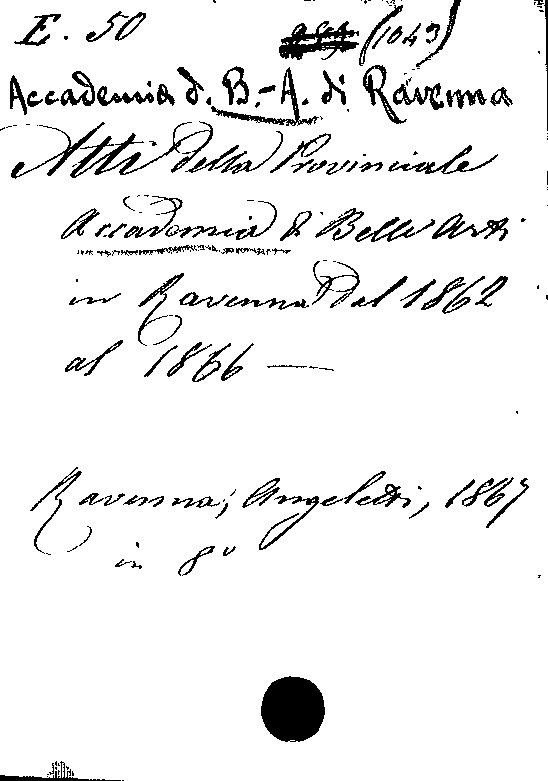 E. 50 (1043)
Accademia d. B.-A. di Ravenna
Atti della Provinciale
Accademia di Belle Arti
in Ravenna dal 1862
al 1866 —
Ravenna, Angeletti, 1867
in 8º